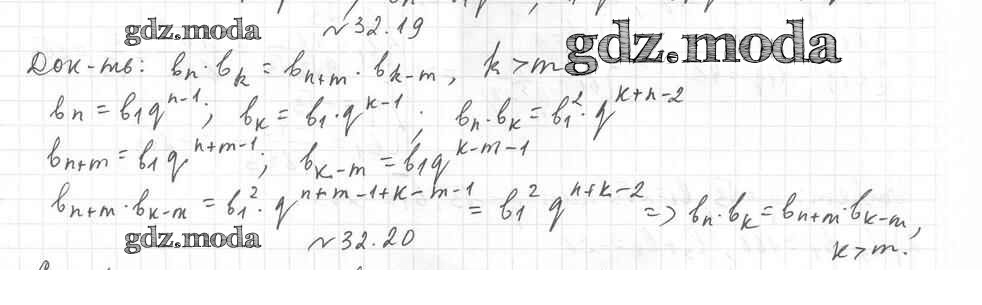 gdz.moda
№ 32.19
gdz.moda
Док-ть: bₙ·bₖ = bₙ₊ₘ · bₖ₋ₘ, k > m
bₙ = b₁qⁿ⁻¹; bₖ = b₁·qᵏ⁻¹; bₙ·bₖ = b₁²·qᵏ⁺ⁿ⁻²
bₙ₊ₘ = b₁qⁿ⁺ᵐ⁻¹; bₖ₋ₘ = b₁qᵏ⁻ᵐ⁻¹
bₙ₊ₘ·bₖ₋ₘ = b₁²·qⁿ⁺ᵐ⁻¹⁺ᵏ⁻ᵐ⁻¹ = b₁² qⁿ⁺ᵏ⁻² => bₙ·bₖ = bₙ₊ₘ·bₖ₋ₘ,
k > m.
gdz.moda
№ 32.20